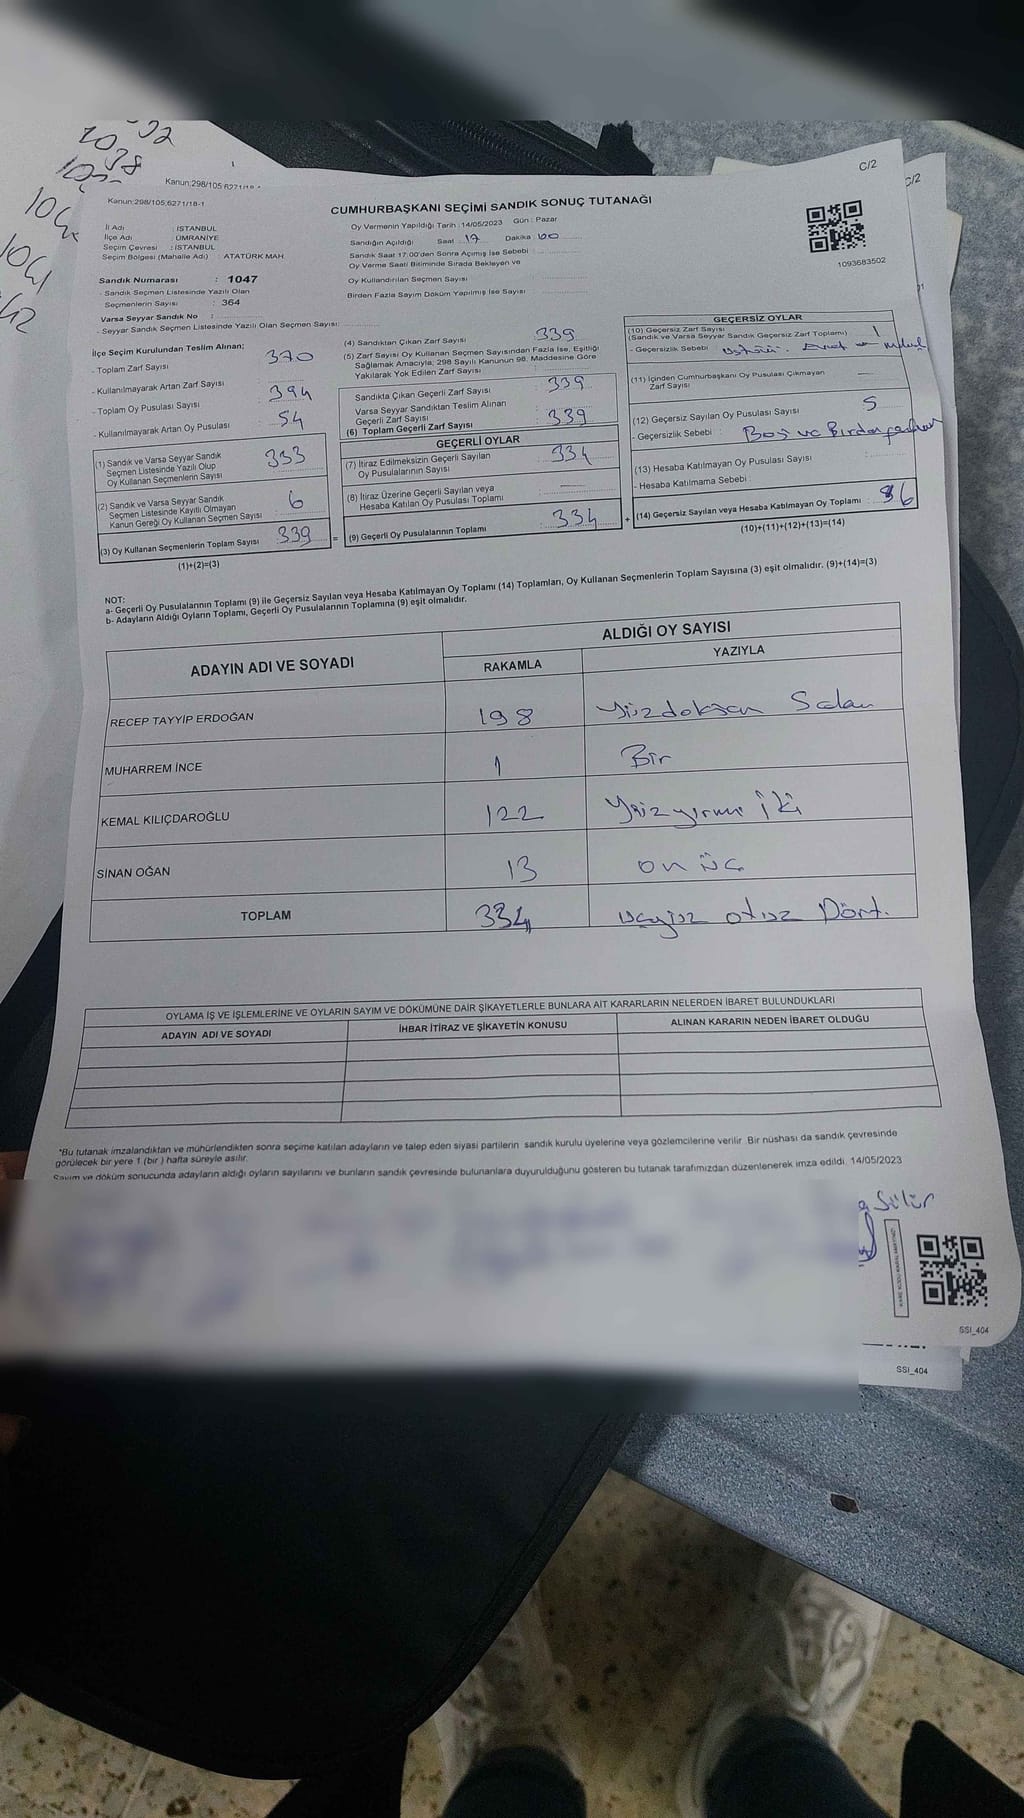 32
1038
103
104
1041
42
Kanun:298/105 6271/18-1
C/2
C/2
Kanun:298/105;6271/18-1
CUMHURBAŞKANI SEÇİMİ SANDIK SONUÇ TUTANAĞI
İl Adı : İSTANBUL
İlçe Adı : ÜMRANİYE
Seçim Çevresi : İSTANBUL
Seçim Bölgesi (Mahalle Adı) ATATÜRK MAH.
Sandık Numarası : 1047
- Sandık Seçmen Listesinde Yazılı Olan
Seçmenlerin Sayısı : 364
Varsa Seyyar Sandık No :
- Seyyar Sandık Seçmen Listesinde Yazılı Olan Seçmen Sayısı:
Oy Vermenin Yapıldığı Tarih : 14/05/2023 Gün : Pazar
Sandığın Açıldığı Saat 17 Dakika 00
Sandık Saat 17:00'den Sonra Açmış İse Sebebi :
Oy Verme Saati Bitiminde Sırada Bekleyen ve
Oy Kullandırılan Seçmen Sayısı :
Birden Fazla Sayım Döküm Yapılmış İse Sayısı :
1093683502
İlçe Seçim Kurulundan Teslim Alınan;
- Toplam Zarf Sayısı : 370
- Kullanılmayarak Artan Zarf Sayısı :
- Toplam Oy Pusulası Sayısı : 394
- Kullanılmayarak Artan Oy Pusulası : 54
(1) Sandık ve Varsa Seyyar Sandık
Seçmen Listesinde Yazılı Olup
Oy Kullanan Seçmenlerin Sayısı : 333
(2) Sandık ve Varsa Seyyar Sandık
Seçmen Listesinde Kayıtlı Olmayan
Kanun Gereği Oy Kullanan Seçmen Sayısı : 6
(3) Oy Kullanan Seçmenlerin Toplam Sayısı : 339
(1)+(2)=(3)
(4) Sandıktan Çıkan Zarf Sayısı : 339
(5) Zarf Sayısı Oy Kullanan Seçmen Sayısından Fazla İse, Eşitliği
Sağlamak Amacıyla; 298 Sayılı Kanunun 98. Maddesine Göre
Yakılarak Yok Edilen Zarf Sayısı :
Sandıkta Çıkan Geçerli Zarf Sayısı : 339
Varsa Seyyar Sandıktan Teslim Alınan
Geçerli Zarf Sayısı :
(6) Toplam Geçerli Zarf Sayısı : 339
GEÇERLİ OYLAR
(7) İtiraz Edilmeksizin Geçerli Sayılan
Oy Pusulalarının Sayısı : 334
(8) İtiraz Üzerine Geçerli Sayılan veya
Hesaba Katılan Oy Pusulası Toplamı : —
(9) Geçerli Oy Pusulalarının Toplamı : 334
=
+
GEÇERSİZ OYLAR
(10) Geçersiz Zarf Sayısı
(Sandık ve Varsa Seyyar Sandık Geçersiz Zarf Toplamı) : 1
- Geçersizlik Sebebi :
(11) İçinden Cumhurbaşkanı Oy Pusulası Çıkmayan
Zarf Sayısı : —
(12) Geçersiz Sayılan Oy Pusulası Sayısı : 5
- Geçersizlik Sebebi : Boş ve Birden
(13) Hesaba Katılmayan Oy Pusulası Sayısı :
- Hesaba Katılmama Sebebi :
(14) Geçersiz Sayılan veya Hesaba Katılmayan Oy Toplamı : 6
(10)+(11)+(12)+(13)=(14)
NOT:
a- Geçerli Oy Pusulalarının Toplamı (9) ile Geçersiz Sayılan veya Hesaba Katılmayan Oy Toplamı (14) Toplamları, Oy Kullanan Seçmenlerin Toplam Sayısına (3) eşit olmalıdır. (9)+(14)=(3)
b- Adayların Aldığı Oyların Toplamı, Geçerli Oy Pusulalarının Toplamına (9) eşit olmalıdır.
ADAYIN ADI VE SOYADI
ALDIĞI OY SAYISI
RAKAMLA YAZIYLA
RECEP TAYYİP ERDOĞAN 198 Yüzdoksan Sekiz
MUHARREM İNCE 1 Bir
KEMAL KILIÇDAROĞLU 122 Yüzyirmi iki
SİNAN OĞAN 13 on üç
TOPLAM 334 üçyüz otuz Dört.
OYLAMA İŞ VE İŞLEMLERİNE VE OYLARIN SAYIM VE DÖKÜMÜNE DAİR ŞİKAYETLERLE BUNLARA AİT KARARLARIN NELERDEN İBARET BULUNDUKLARI
ADAYIN ADI VE SOYADI İHBAR İTİRAZ VE ŞİKAYETİN KONUSU ALINAN KARARIN NEDEN İBARET OLDUĞU
*Bu tutanak imzalandıktan ve mühürlendikten sonra seçime katılan adayların ve talep eden siyasi partilerin sandık kurulu üyelerine veya gözlemcilerine verilir. Bir nüshası da sandık çevresinde
görülecek bir yere 1 (bir) hafta süreyle asılır.
Sayım ve döküm sonucunda adayların aldığı oyların sayılarını ve bunların sandık çevresinde bulunanlara duyurulduğunu gösteren bu tutanak tarafımızdan düzenlenerek imza edildi. 14/05/2023
SSİ_404
SSİ_404